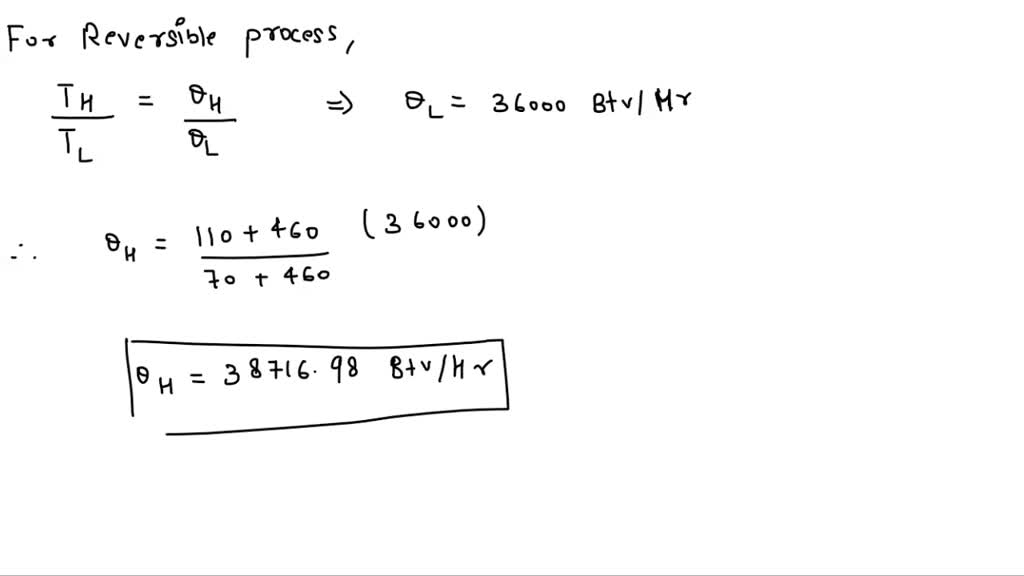 For Reversible process,
TH / TL = θH / θL ⇒ θL = 36000 Btv/Hr
∴ θH = 110 + 460 / 70 + 460 (36000)
θH = 38716.98 Btv/Hr